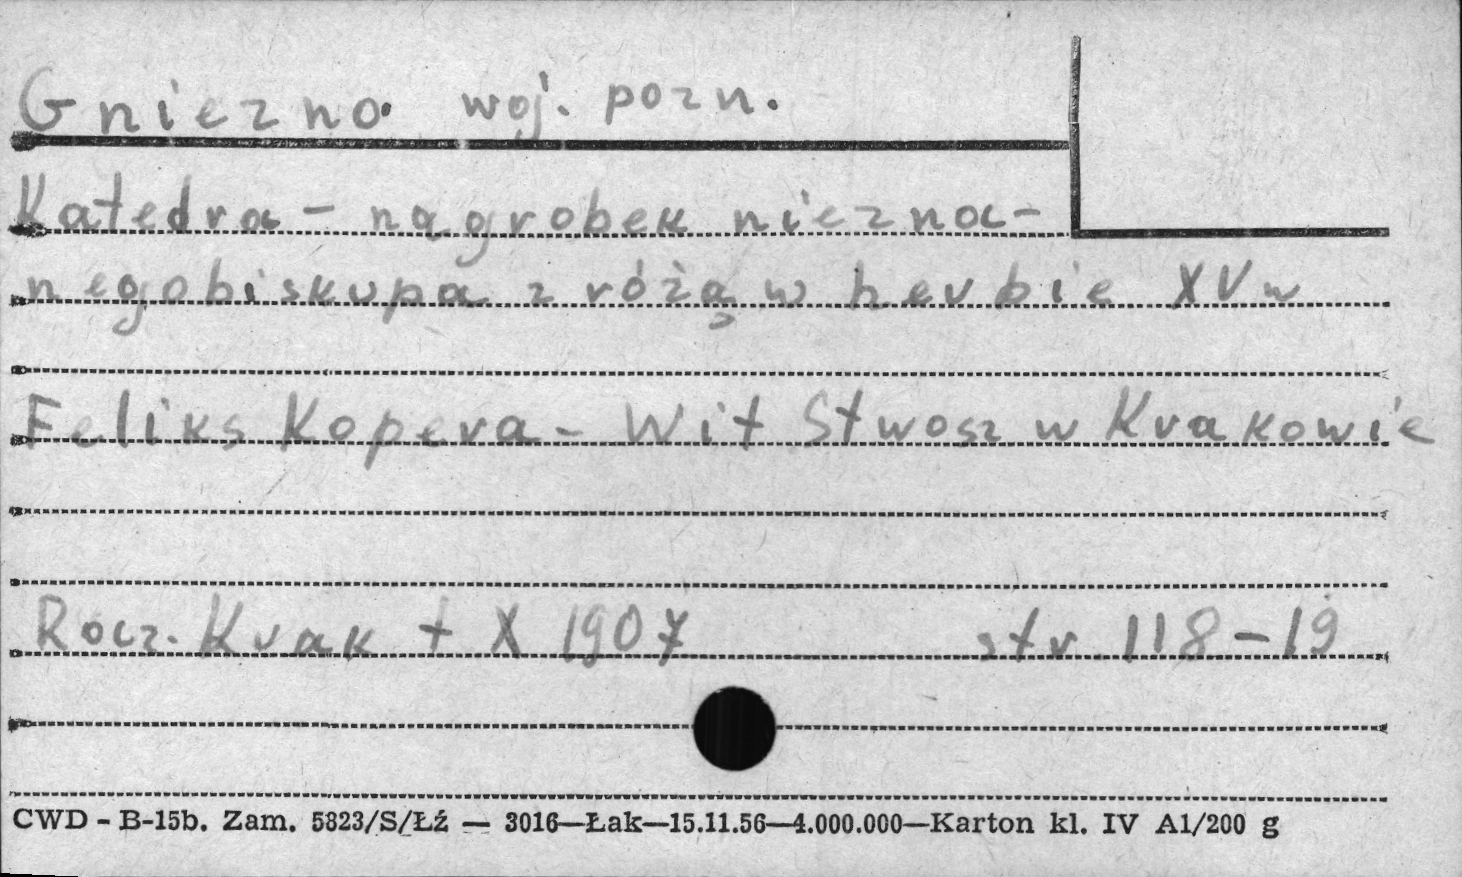 Gniezno woj. pozn.
Katedra - nagrobek niezna-
nego biskupa z różą w herbie XV w
Feliks Kopera - Wit Stwosz w Krakowie
Rocz. Krak t X 1907 str. 118-19
CWD - B-15b. Zam. 5823/S/Łź — 3016—Łak—15.11.56—4.000.000—Karton kl. IV A1/200 g